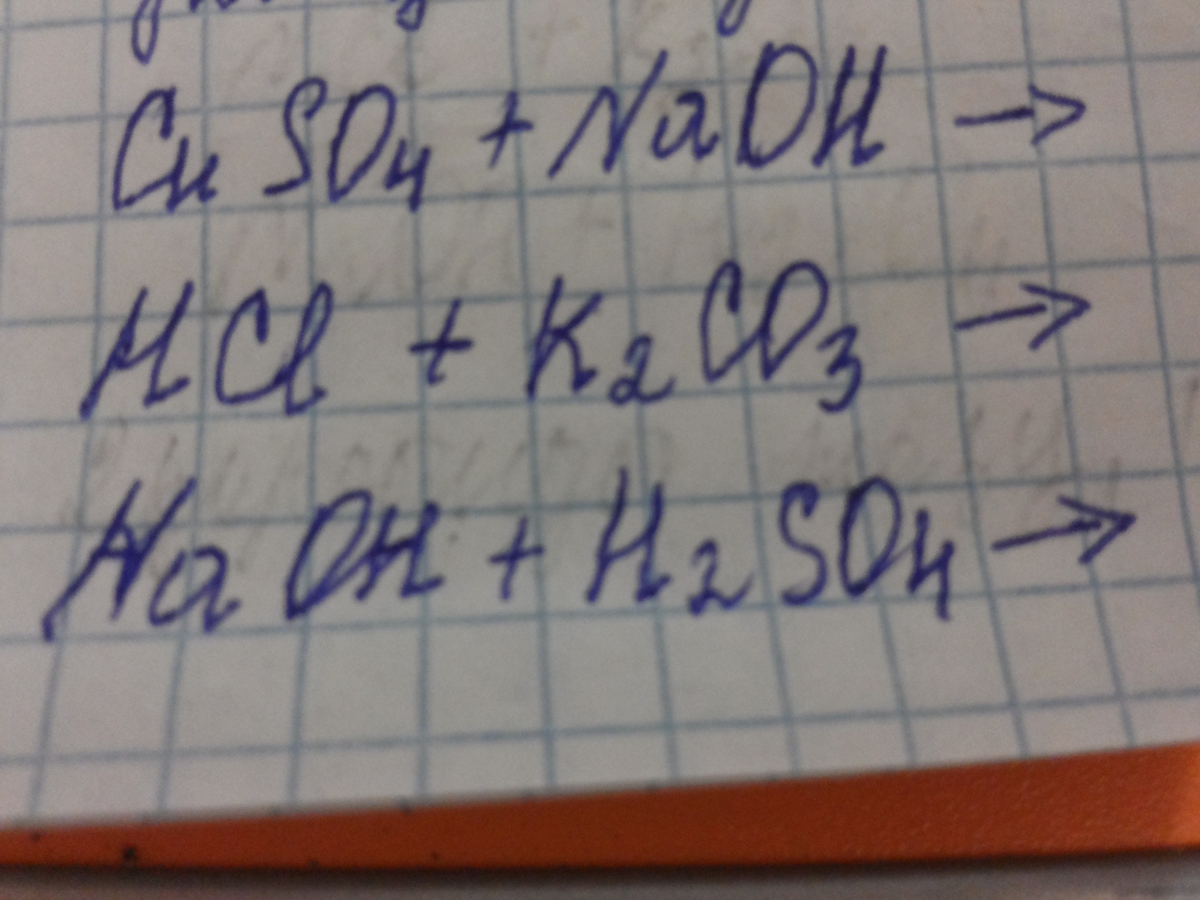 CuSO₄ + NaOH →
HCl + K₂CO₃ →
NaOH + H₂SO₄ →